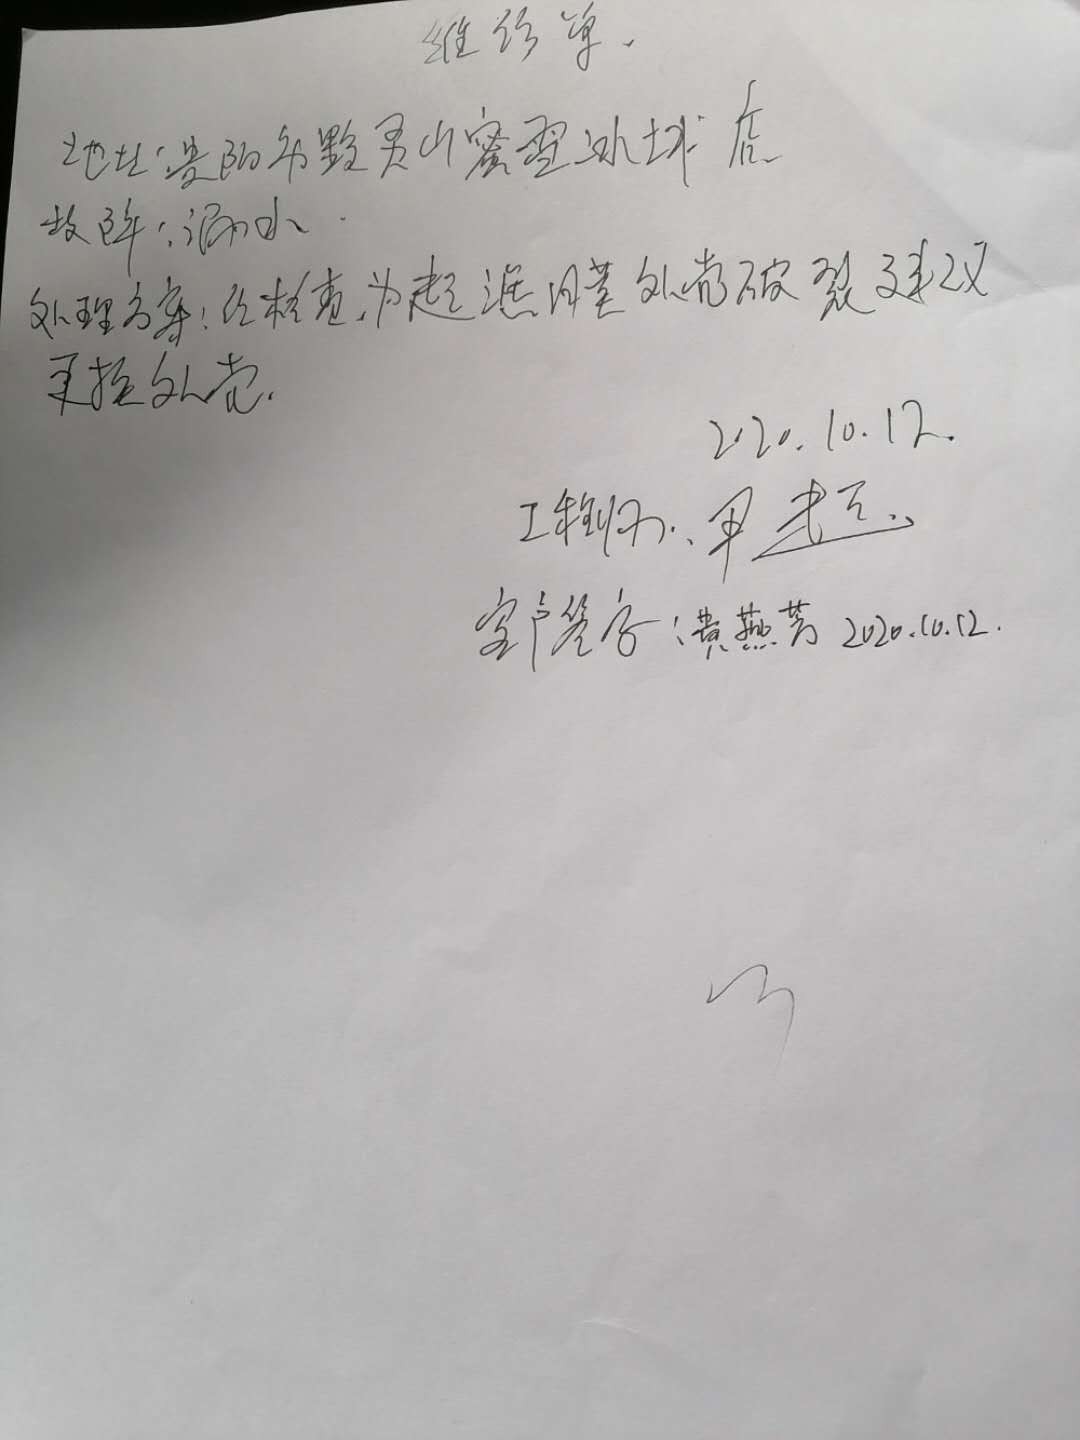 维修单.
地址:贵阳市黔灵山蜜雪冰城店
故障:漏水.
处理方案:经检查,为超滤膜外壳破裂建议
更换外壳.
2020.10.12.
工程师:
客户签字:黄燕芳 2020.10.12.